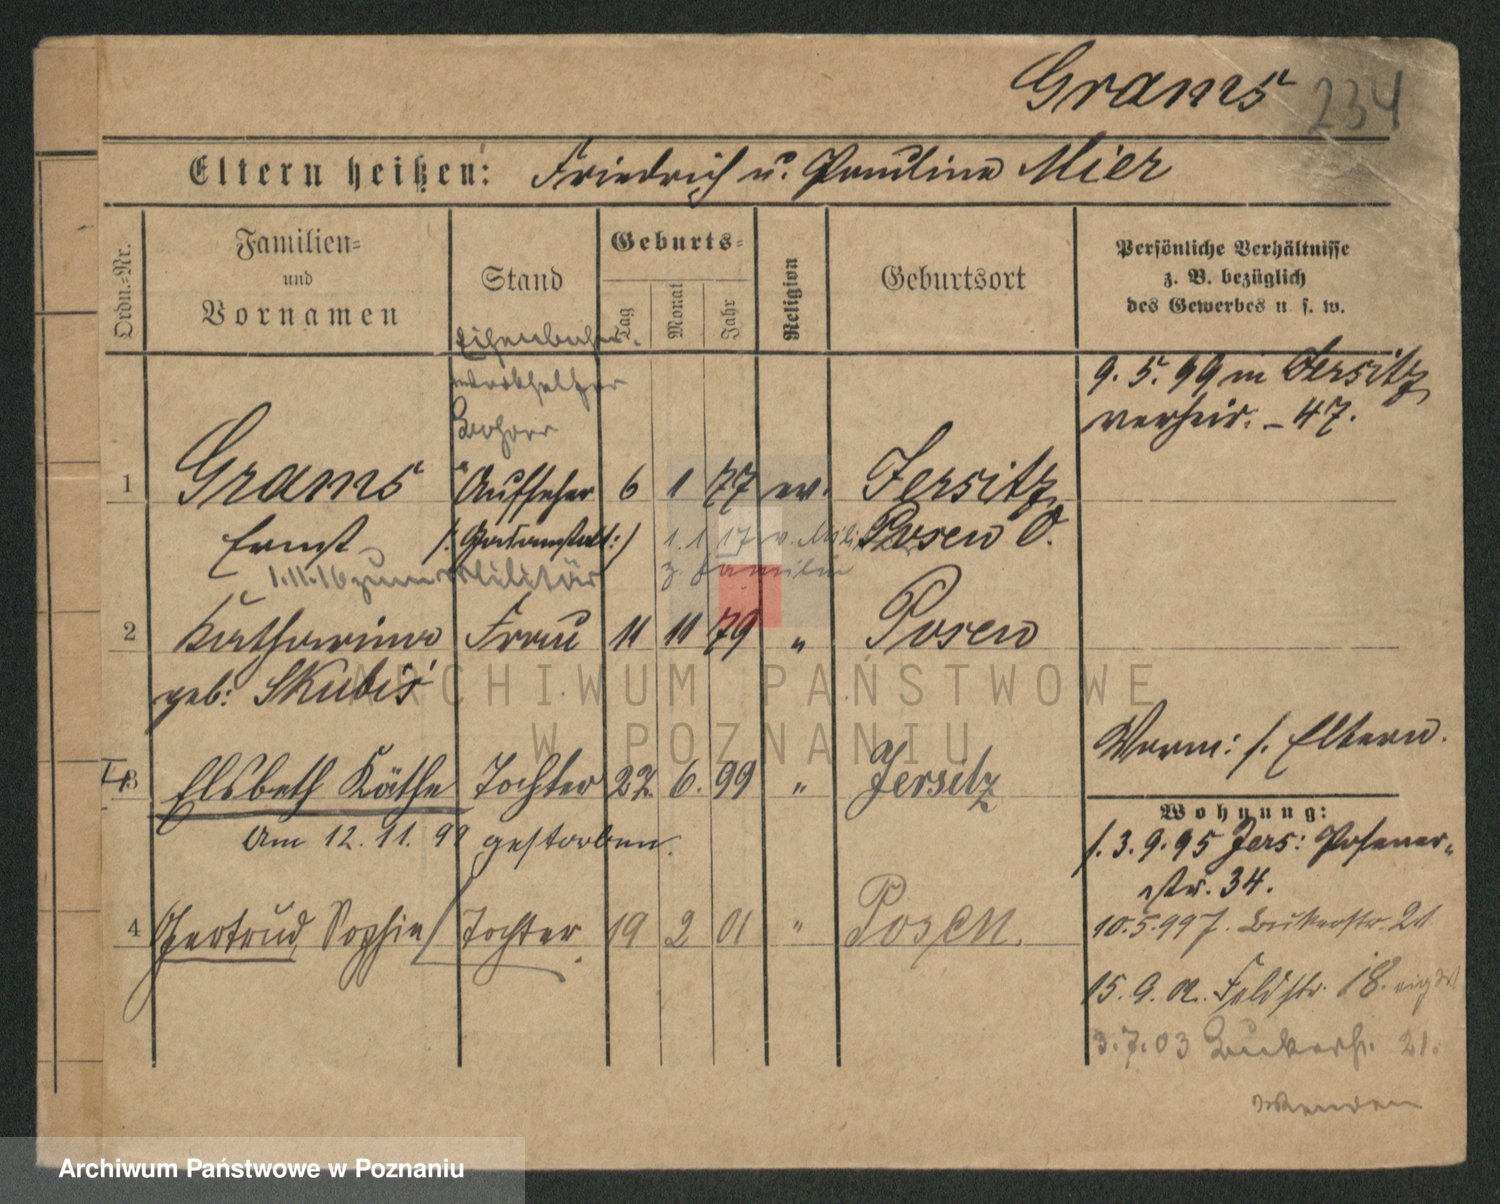 Grams 234
Eltern heißen: Friedrich u. Pauline Mier
Ordn.-Nr.
Familien-
und
Vornamen
Stand
Geburts-
Tag
Monat
Jahr
Religion
Geburtsort
Persönliche Verhältnisse
z. B. bezüglich
des Gewerbes u. s. w.
9. 5. 99 in Jersitz
verheir. – 47.
1 Grams Aufseher 6 1 77 ev. Jersitz
Ernst (: Gasanstalt :) Posen O.
1.11.16 zum Militär
1.1.17 v. Mili
z. Familie
2 Katharina Frau 11 11 79 " Posen
geb: Skubis
Worm: s. Eltern.
3 Elsbeth Käthe Tochter 22. 6. 99 " Jersitz
Am 12. 11. 99 gestorben.
4 Gertrud Sophie Tochter 19 2 01 " Posen.
Wohnung:
s. 3. 9. 95 Jers: Posener-
str. 34.
10. 5. 99 7. Bukerstr. 21
15. 9. 02. Feldstr. 18.
3. 7. 03 Bukerstr. 21.
wenden
ARCHIWUM PAŃSTWOWE
W POZNANIU
Archiwum Państwowe w Poznaniu